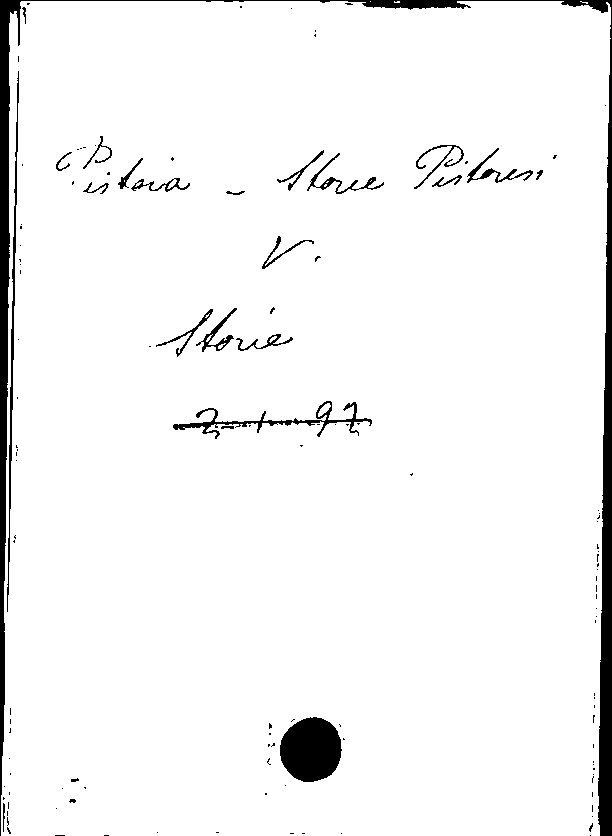 Pistoia - Storie Pistoresi
V.
Storie
2-1-97